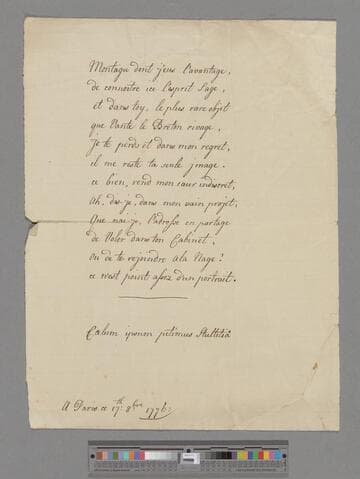 Montagu dont j'eus l'avantage,
de connoître ici l'esprit sage,
et dans toy, le plus rare objet
que Vante le Breton rivage,
Je te perds et dans mon regret,
il me reste ta seule jmage.
ce bien, rend mon cœur indiscret,
Ah, dis-je, dans mon vain projet,
Que n'ai-je, l'adresse en partage
de Voler dans ton Cabinet,
Ou de te rejoindre à la Plage!
ce n'est point assez d'un portrait.
Cœlum ipsum petimus Stultitiâ
A Paris ce 17th 8bre 1776: